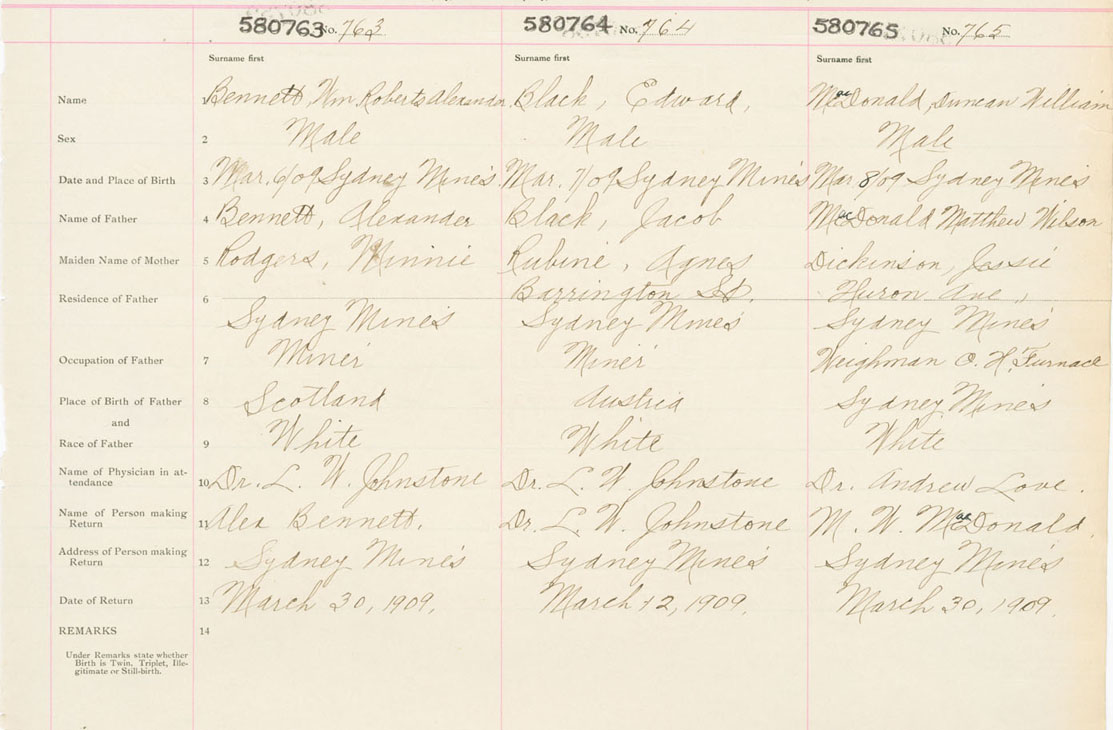 580763 No. 763 580764 No. 764 580765 No. 765
Surname first Surname first Surname first
Name Bennett, Wm Roberts Alexander Black, Edward, MacDonald, Duncan William
Sex 2 Male Male Male
Date and Place of Birth 3 Mar. 6/09 Sydney Mines Mar. 7/09 Sydney Mines Mar 8/09 Sydney Mines
Name of Father 4 Bennett, Alexander Black, Jacob MacDonald Matthew Wilson
Maiden Name of Mother 5 Rodgers, Minnie Rubine, Agnes Dickinson, Jessie
Barrington St. Huron Ave,
Residence of Father 6
Sydney Mines Sydney Mines Sydney Mines
Occupation of Father 7 Miner Miner Weighman O. H. Furnace
Place of Birth of Father 8 Scotland Austria Sydney Mines
and
Race of Father 9 White White White
Name of Physician in at-
tendance 10 Dr. L. W. Johnstone Dr. L. W. Johnstone Dr. Andrew Love.
Name of Person making
Return 11 Alex Bennett. Dr. L. W. Johnstone M. W. MacDonald.
Address of Person making
Return 12 Sydney Mines Sydney Mines Sydney Mines
Date of Return 13 March 30, 1909. March 12, 1909. March 30, 1909.
REMARKS 14
Under Remarks state whether
Birth is Twin, Triplet, Ille-
gitimate or Still-birth.